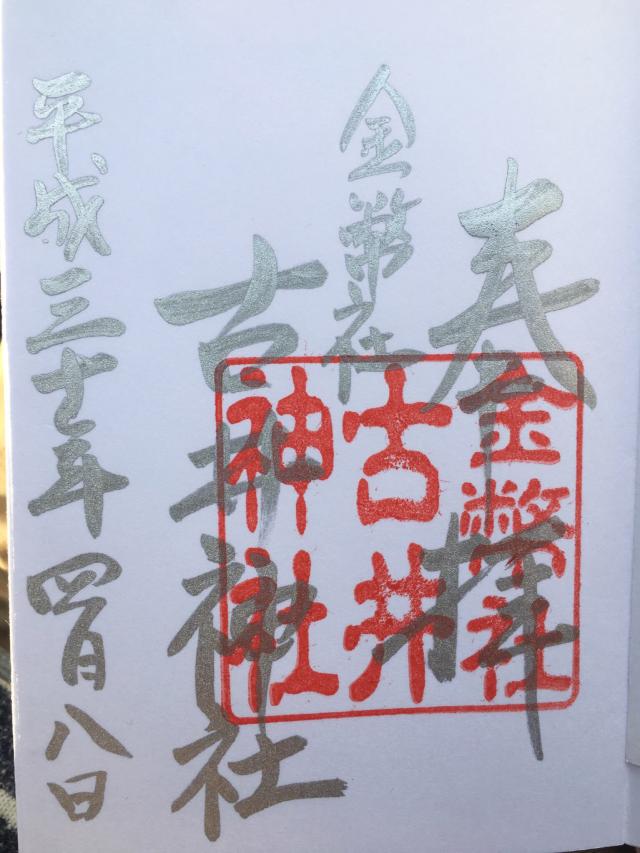 奉拝
金幣社
古井神社
平成三十年四月八日
金幣社
古井
神社